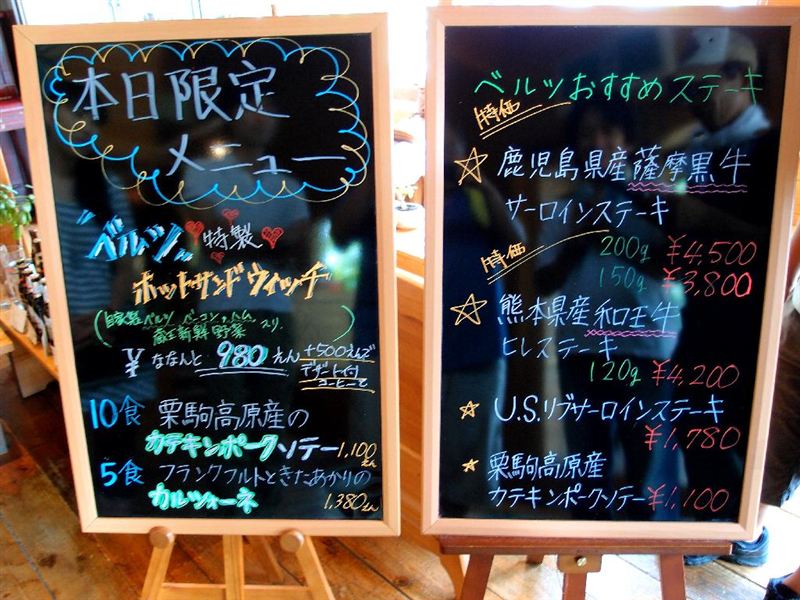 本日限定
メニュー
"ベルツ"特製
ホットサンドウィッチ
(自家製ベルツ ベーコン、ハム
蔵王新鮮野菜 入り.)
¥ ななんと 980えん +500えんで
デザート付
コーヒーで
10食 栗駒高原産の
カテキンポークソテー 1,100えん
5食 フランクフルトときたあかりの
カルツォーネ 1,380えん
ベルツおすすめステーキ
特価
☆ 鹿児島県産薩摩黒牛
サーロインステーキ
200g ¥4,500
150g ¥3,800
特価
☆ 熊本県産和王牛
ヒレステーキ
120g ¥4,200
☆ U.S.リブサーロインステーキ
¥1,780
☆ 栗駒高原産
カテキンポークソテー ¥1,100